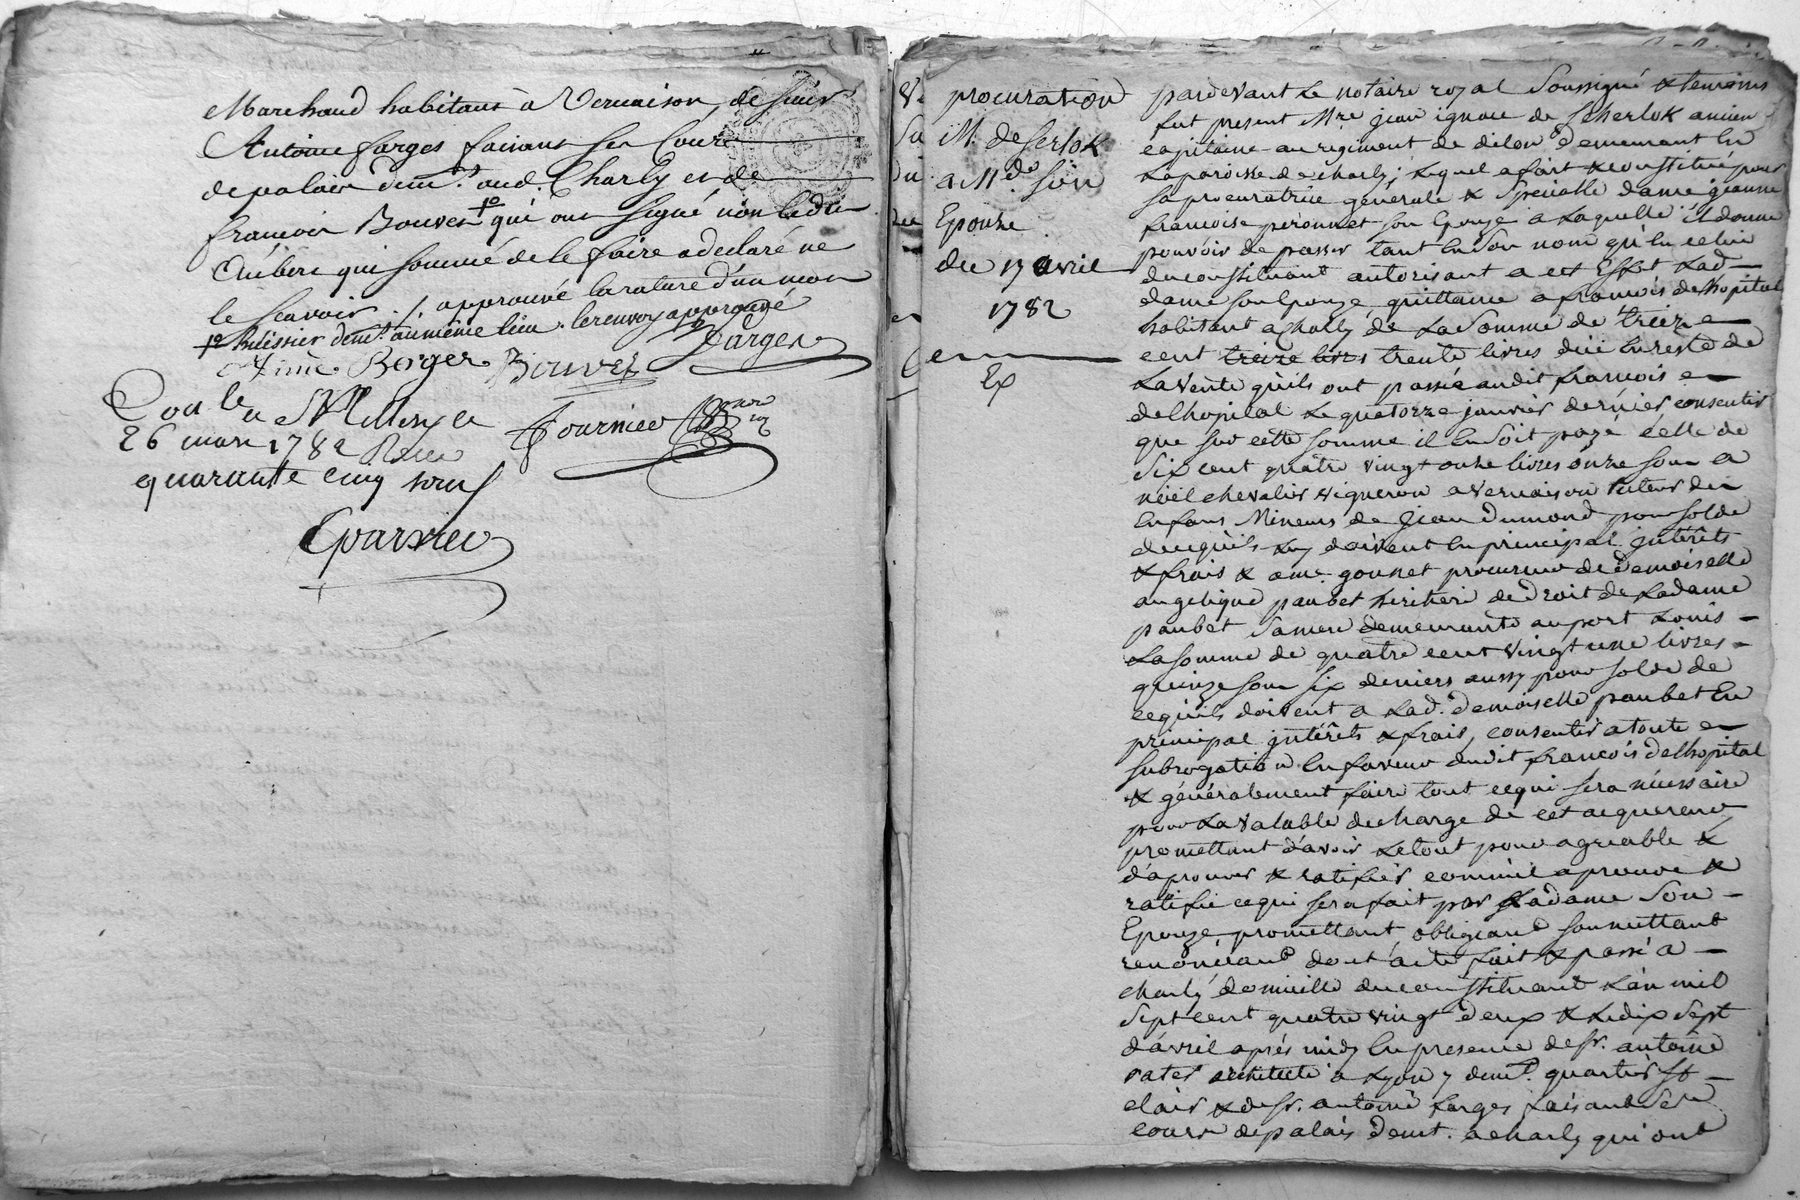 Marchand habitant à Vernaison, de sieur
Antoine farges faisant ses cours
de palais demt. aud. Charly et de
françois Bouvet 1º qui ont signé non ledit
Aubert qui sommé de le faire a declaré ne
le scavoir ./. approuvé la rature d'un mot
1º huissier demt. au même lieu. le renvoy approuvé
Aimé Berger Bouvet farges
Con.lé a St
26 mars 1782 Recu fournier
quarante cinq sous
procuration
M. de Serlok
a Md.e son
Epouze
du 17 avril
1782
Ex
pardevant Le notaire royal Soussigné & temoins
fut present Mre jean ignace de Scherlok ancien
capitaine au regiment de dilon demeurant En
La paroisse de charly; Lequel a fait & constitué pour
sa procuratrice generale & Specialle dame jeanne
francoise peronnet son Epouze a Laquelle il donne
pouvoir de passer tant En son nom qu'En celui
du constituant autorisant a cet Effet Lad.
dame son Epouze, quittance a francois delhopital
habitant a charly de La Somme de treize
cent treize livres trente livres dûe En reste de
La vente qu'ils ont passée audit francois
delhopital Le quatorze janvier dernier, consentir
que sur cette somme il En soit payé celle de
Six cent quatre vingt onze livres onze sous a
nöel chevalier vigneron a Vernaison tuteur des
Enfans Mineurs de jean dumond pour solde
de cequ'ils Luy doivent En principal intérêts
& frais & a me. gonnet procureur de demoiselle
angelique paubet heritiere de droit de Ladame
paubet Samere demeurante au port Louis
La somme de quatre cent vingt une livres
quinze sous six deniers aussy pour solde de
cequ'ils doivent a Lad. demoiselle paubet En
principal intérêts & frais, consentir a toute
subrogation En faveur dudit francois delhopital
& généralement faire tout cequi sera nécessaire
pour La Valable decharge de cet acquereur
promettant d'avoir Le tout pour agreable &
d'aprouver & ratifier comm'il aprouve &
ratifie cequi sera fait par Ladame Son
Epouze, promettant obligeant soumettant
renonciant dont acte fait & passé a
charly domicille du constituant L'an mil
Sept cent quatre vingt deux & Le dix Sept
d'avril après midy En presence de sr. antoine
rater architecte a Lyon y demt. quartier St
clair & de sr. antoine farges faisant Ses
cours de palais demt. a charly qui ont